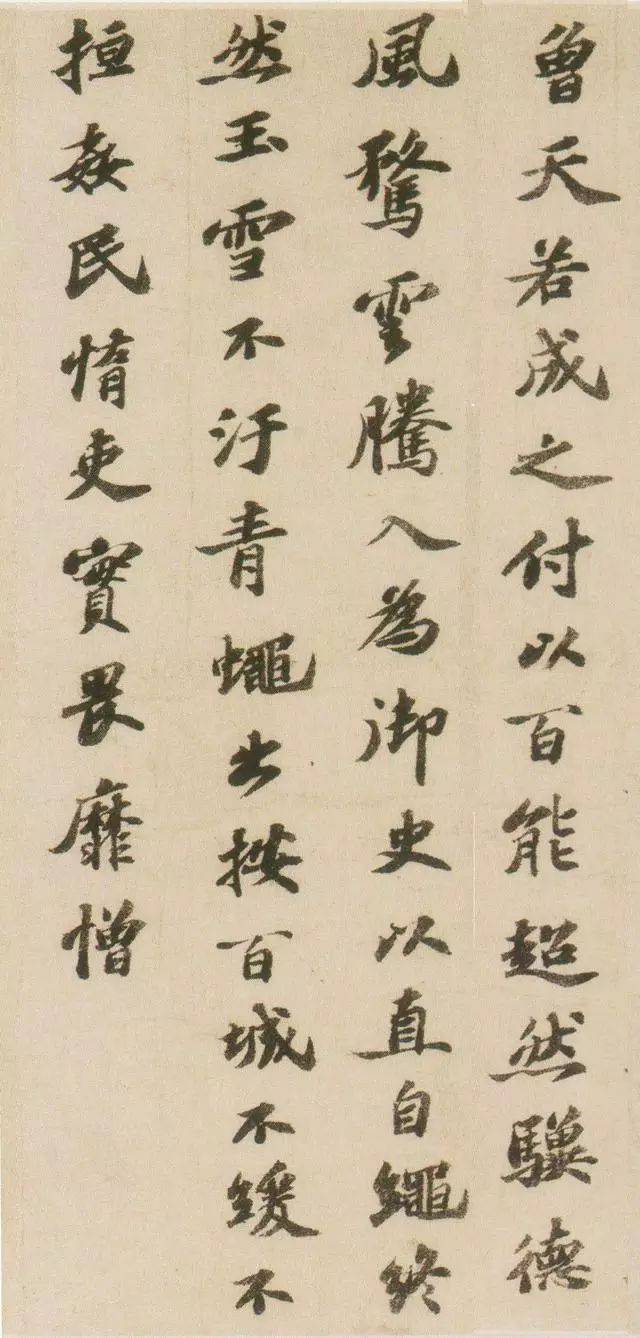 曾天若成之付以百能超然驥德
風騖雲騰入為御史以直自繩終
然玉雪不汙青蠅出按百城不緩不
姦民惰吏實畏靡憎